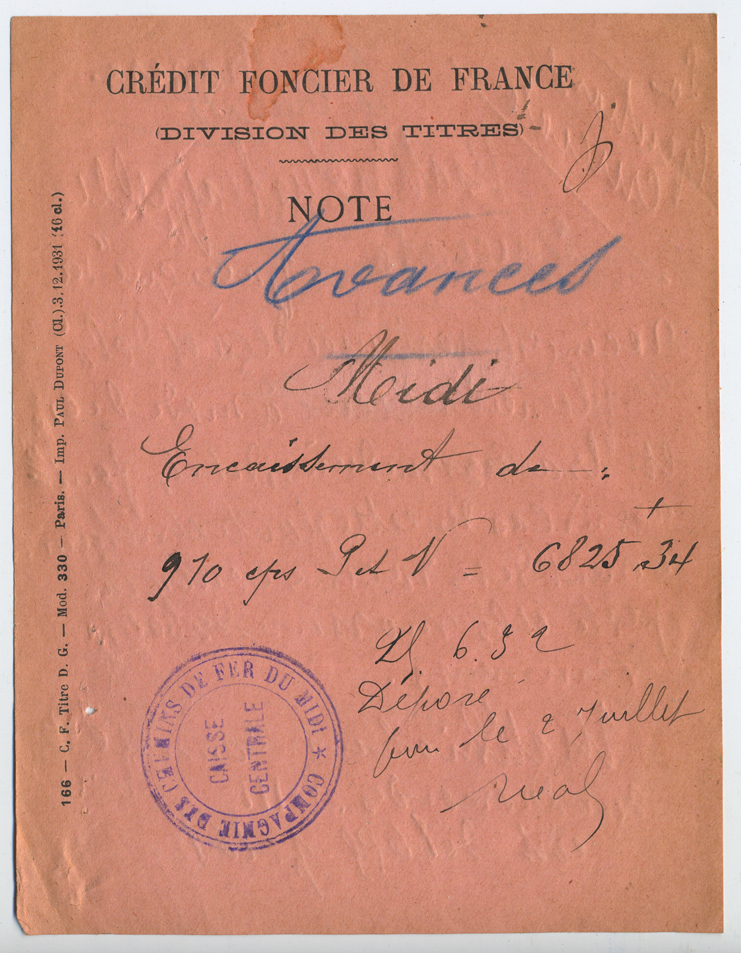 CRÉDIT FONCIER DE FRANCE
(DIVISION DES TITRES)
NOTE
Avances
Midi
Encaissement de :
910 cps P et V = 6825,34
6.32
Déposé
pour le 2 Juillet
COMPAGNIE DES CHEMINS DE FER DU MIDI *
CAISSE
CENTRALE
166 — C. F. Titre D. G. — Mod. 330 — Paris. — Imp. PAUL DUPONT (Cl.).3.12.1931 (46 cl.)